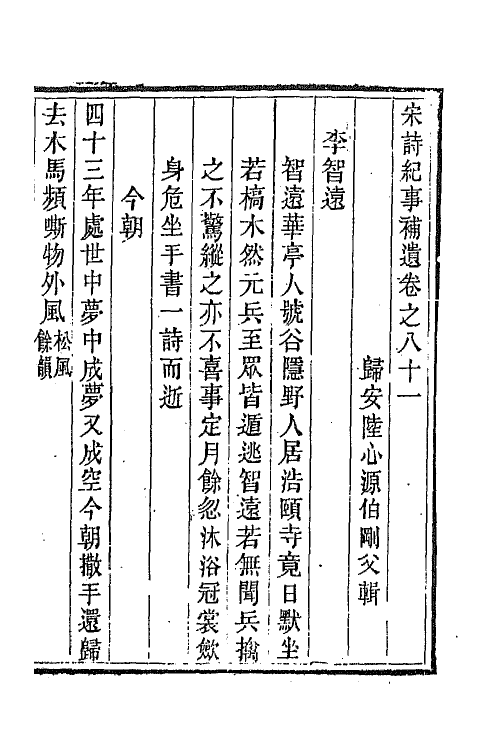 宋詩紀事補遺卷之八十一
歸安陸心源伯剛父輯
李智遠
智遠華亭人號谷隱野人居浩頤寺竟日默坐
若槁木然元兵至眾皆遁逃智遠若無聞兵擒
之不驚縱之亦不喜事定月餘忽沐浴冠裳歛
身危坐手書一詩而逝
今朝
四十三年處世中夢中成夢又成空今朝撒手還歸
去木馬頻嘶物外風松風餘韻